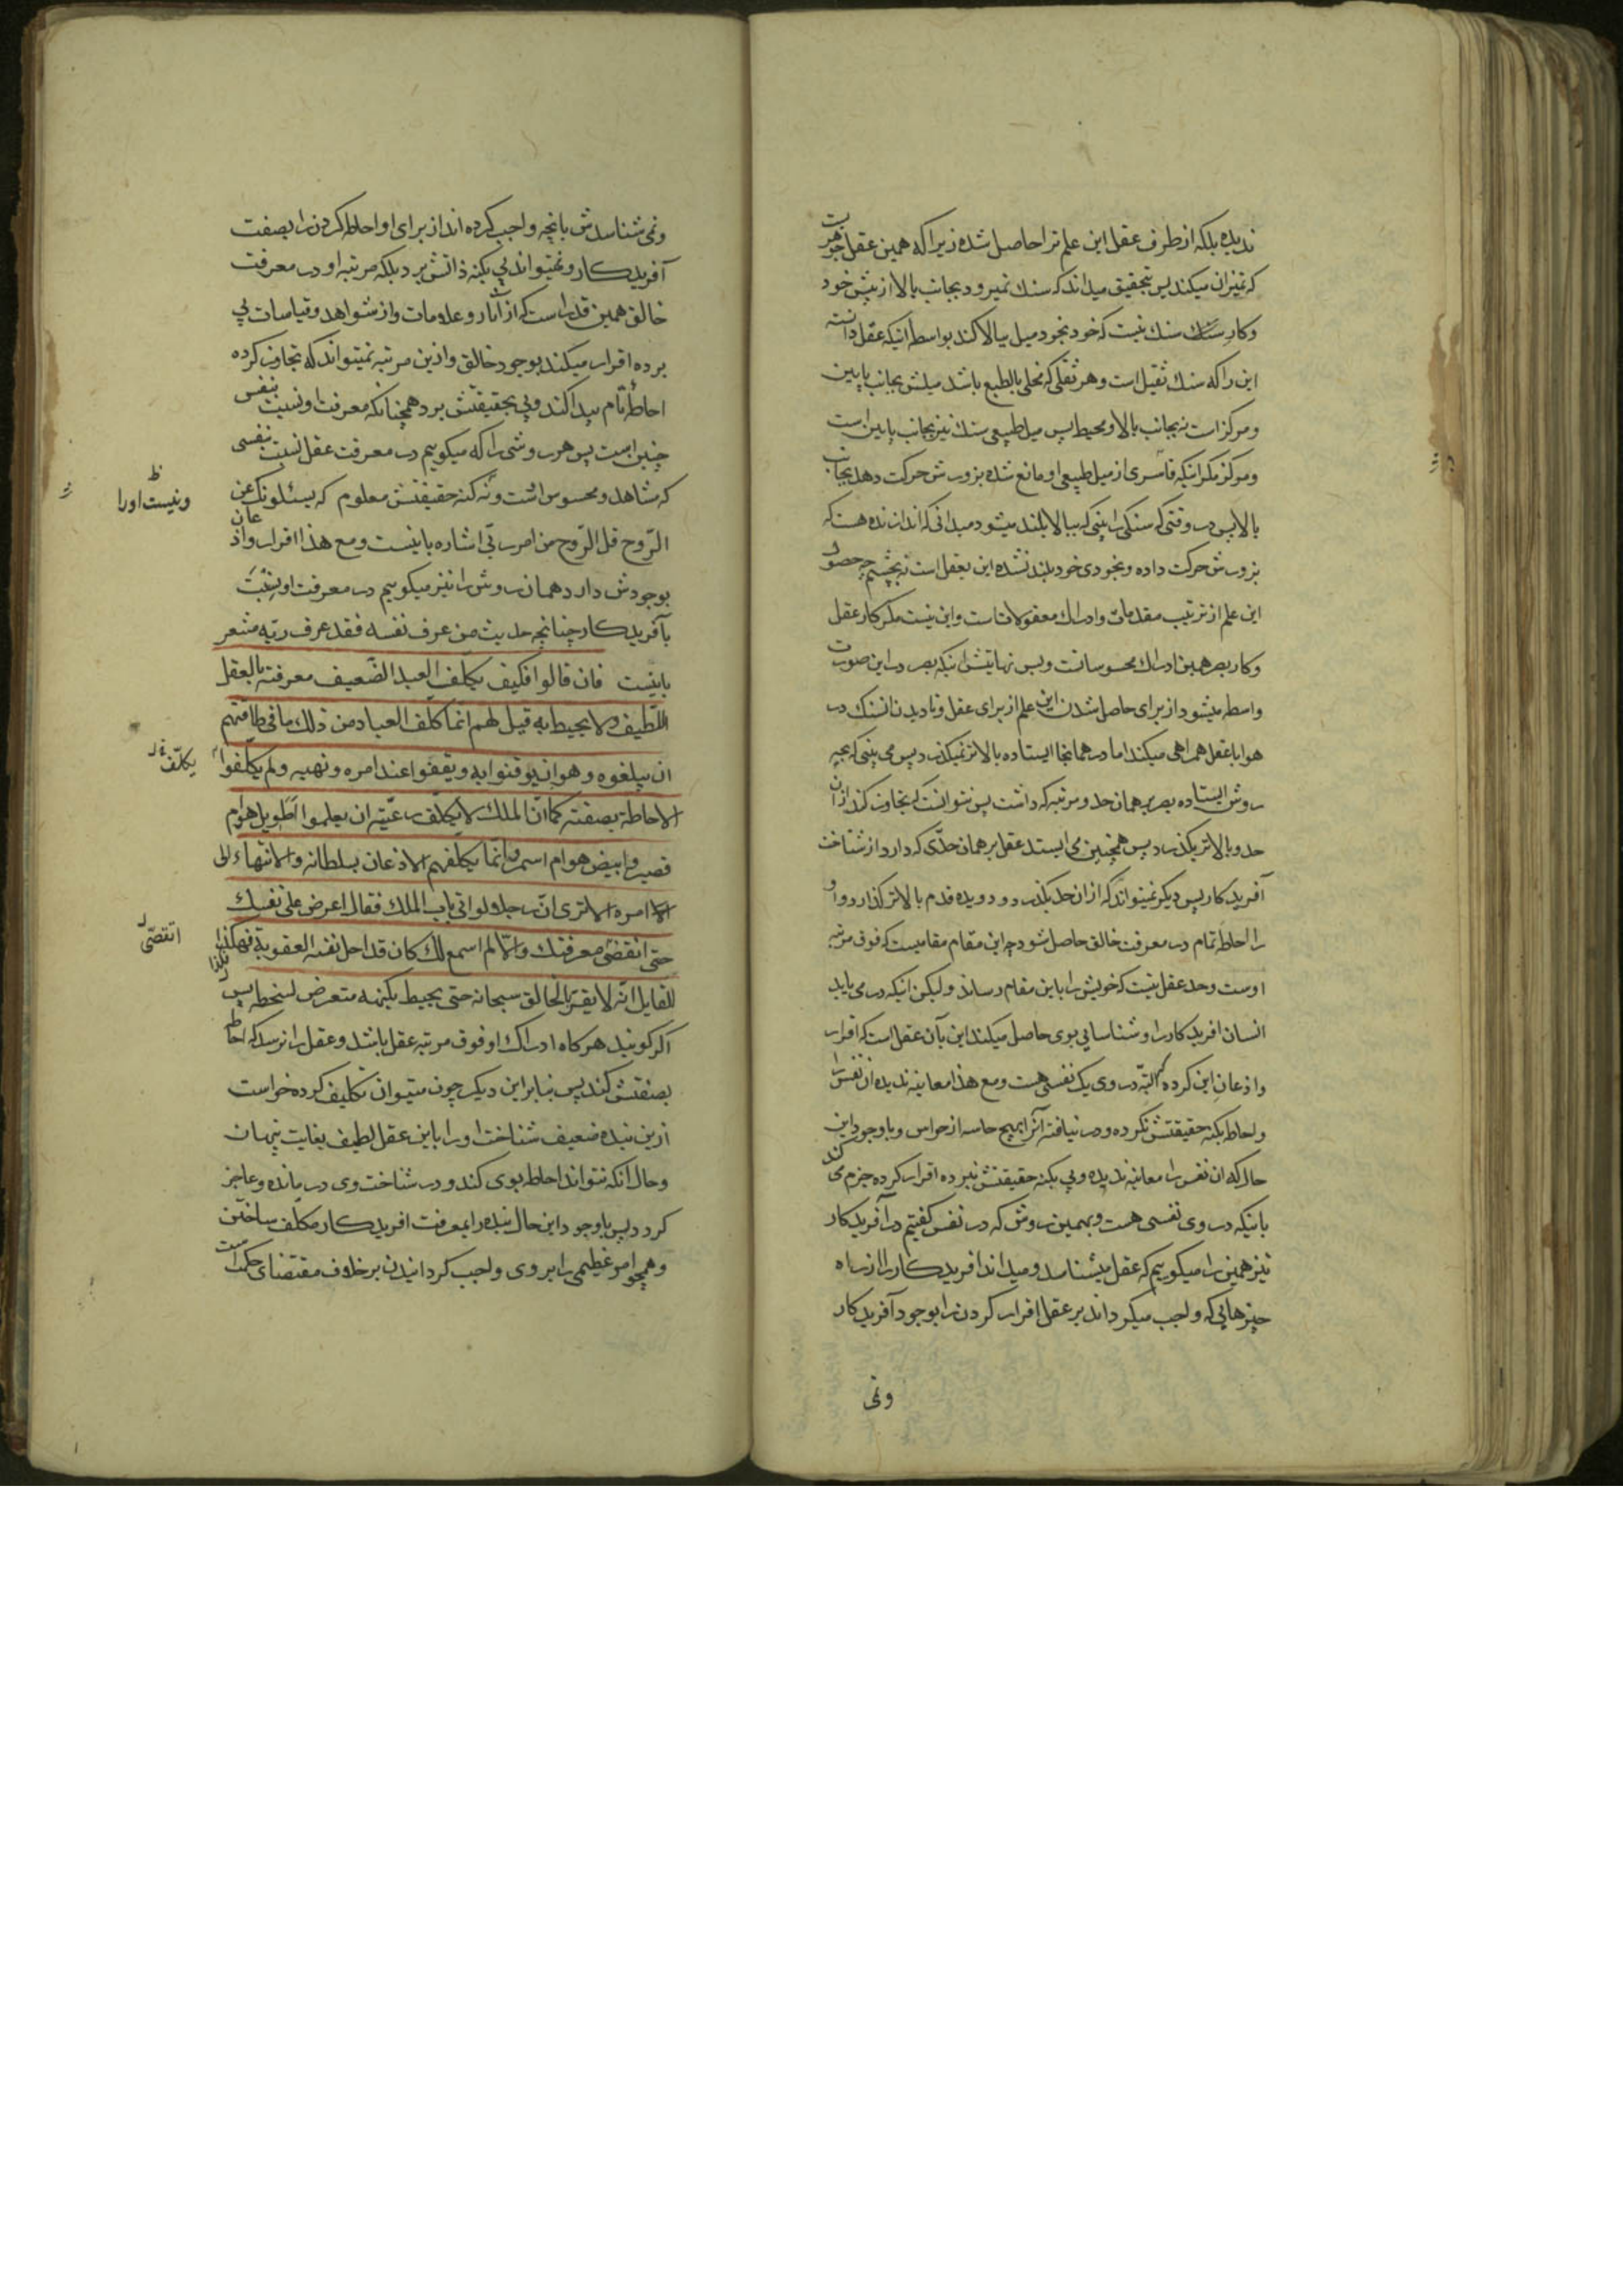 ندیده بلکه از طرف عقل این علم ترا حاصل شده زیرا که همین عقل جوهریست
که تمیزان میکند پس بتحقیق میداند که سنک نمیرود بجانب بالا از پیش خود
وکار سنک سنک نیست که خود بخود میل ببالا کند بواسطه انیکه عقل دانسته
این را که سنک ثقیل است وهر ثقلی که مخلی بالطبع باشد میلش بجانب پایین
ومرکز است نه بجانب بالا ومحیط پس میل طبیعی سنک نیز بجانب پایین است
ومرکز مکر انیکه قاسری از میل طبیعی او مانع شده بزور ش حرکت دهد بجانب
بالا پس در وقتی که سنکی را بینی که ببالا بلند میشود میدانی که اندازنده هست که
بزورش حرکت داده وبخودی خود بلند نشده این بعقل است نه بچشم چه حصول
این علم از ترتیب مقدمات وادراک معقولات است واین نیست مکر کار عقل
وکار بصر همین ادراک محسوسات وبس نهایتش انیکه بصر در این صورت
واسطه میشود از برای حاصل شدن این علم از برای عقل وتا دیدن انسنک در
هوا با عقل همراهی میکند اما در همانجا ایستاده بالاتر نمیکذرد پس می بینی که بچه
روش ایستاده بصر بر همان حد ومرتبه که داشت پس نتوانست که تجاوز کند از ان
حد وبالاتر بکذرد پس همچنین می ایستد عقل بر همان حدّی که دارد از شناخت
آفریدکار پس دیکر نمیتواند که از ان حد بکذرد ودویده قدم بالاتر کذارد واو
را احاطه تمام در معرفت خالق حاصل شود چه این مقام مقامیست که فوق مرتبه
اوست وحد عقل نیست که خویش را باین مقام رساند ولیکن انیکه در می یابد
انسان افریدکار را وشناسایی بوی حاصل میکند این بآن عقل است که اقرار
واذعان این کرده که البتّه در وی یک نفسی هست ومع هذا معاینه ندیده ان نفس را
واحاطه بکنه حقیقتش نکرده ودر نیافته آنرا بهیچ حاسه از حواس وبا وجود این
حال که ان نفس را معاینه ندیده وپی بکنه حقیقتش نبرده اقرار کرده جزم می کند
بانیکه در وی نفسی هست وبهمین روش که در نفس کفتیم در آفریدکار
نیز همین را میکوییم که عقل میشناسد ومیداند افریدکار را از راه
چیزهایی که واجب میکرداند بر عقل اقرار کردن را بوجود آفریدکار
ونمی
ونمی شناسدش بانچه واجب کرده اند از برای او احاطه کردن را بصفت
آفریدکار ونمیتواند پی بکنه ذاتش برد بلکه مرتبه او در معرفت
خالق همین قدر است که از آثار وعلامات واز شواهد وقیاسات پی
برده اقرار میکند بوجود خالق وازین مرتبه نمیتواند که تجاوز کرده
احاطه تام پیدا کند وپی بحقیقتش برد همچنانکه معرفت او نسبت بنفس
چنین است پس هر روشی را که میکوییم در معرفت عقل نسبت بنفسی
که مشاهد ومحسوس است ونه کنه حقیقتش معلوم که یسئلونک عن
ونیست اورا
الرّوح قل الرّوح من امر ربّی اشاره بانیست ومع هذا اقرار واذعان
بوجودش دارد همان روش را نیز میکوییم در معرفت او بنسبت
بآفریدکار چنانچه حدیث من عرف نفسه فقد عرف ربّه مشعر
بانیست فان قالوا فکیف یکلّف العبد الضّعیف معرفته بالعقل
اللّطیف ولا یحیط به قیل لهم انّما کلّف العباد من ذلک ما فی طاقتهم
ان یبلغوه وهو ان یوقنوا به ویقفوا عند امره ونهیه ولم یکلّفوا
یکلّف
الاحاطة بصفته کما انّ الملک لا یکلّف رعیّته ان یعلموا اطویل هو ام
قصیر وابیض هو ام اسمر وانّما یکلّفهم الاذعان بسلطانه والانتهاء الی
امره الا تری انّ رجلا لو اتی باب الملک فقال اعرض علی نفسک
حتی اتقصّی معرفتک والّا لم اسمع لک کان قد احل نفسه العقوبة فهکذا
اتقصّی
القایل انّه لا یقرّ بالخالق سبحانه حتی یحیط بکنهه متعرض لسخطه پس
اکر کویند هرکاه ادراک او فوق مرتبه عقل باشد وعقل را نرسد که احاطه
بصفتش کند پس بنا براین دیکر چون میتوان تکلیف کرده خواست
ازین بنده ضعیف شناخت او را باین عقل لطیف بغایت پنهان
وحال آنکه نتواند احاطه بوی کند ودر شناخت وی در مانده وعاجز
کردد پس با وجود این حال بنده را بمعرفت افریدکار مکلّف ساختن
وهمچو امر عظیمی را بر وی واجب کردانیدن بر خلاف مقتضای حکمت است